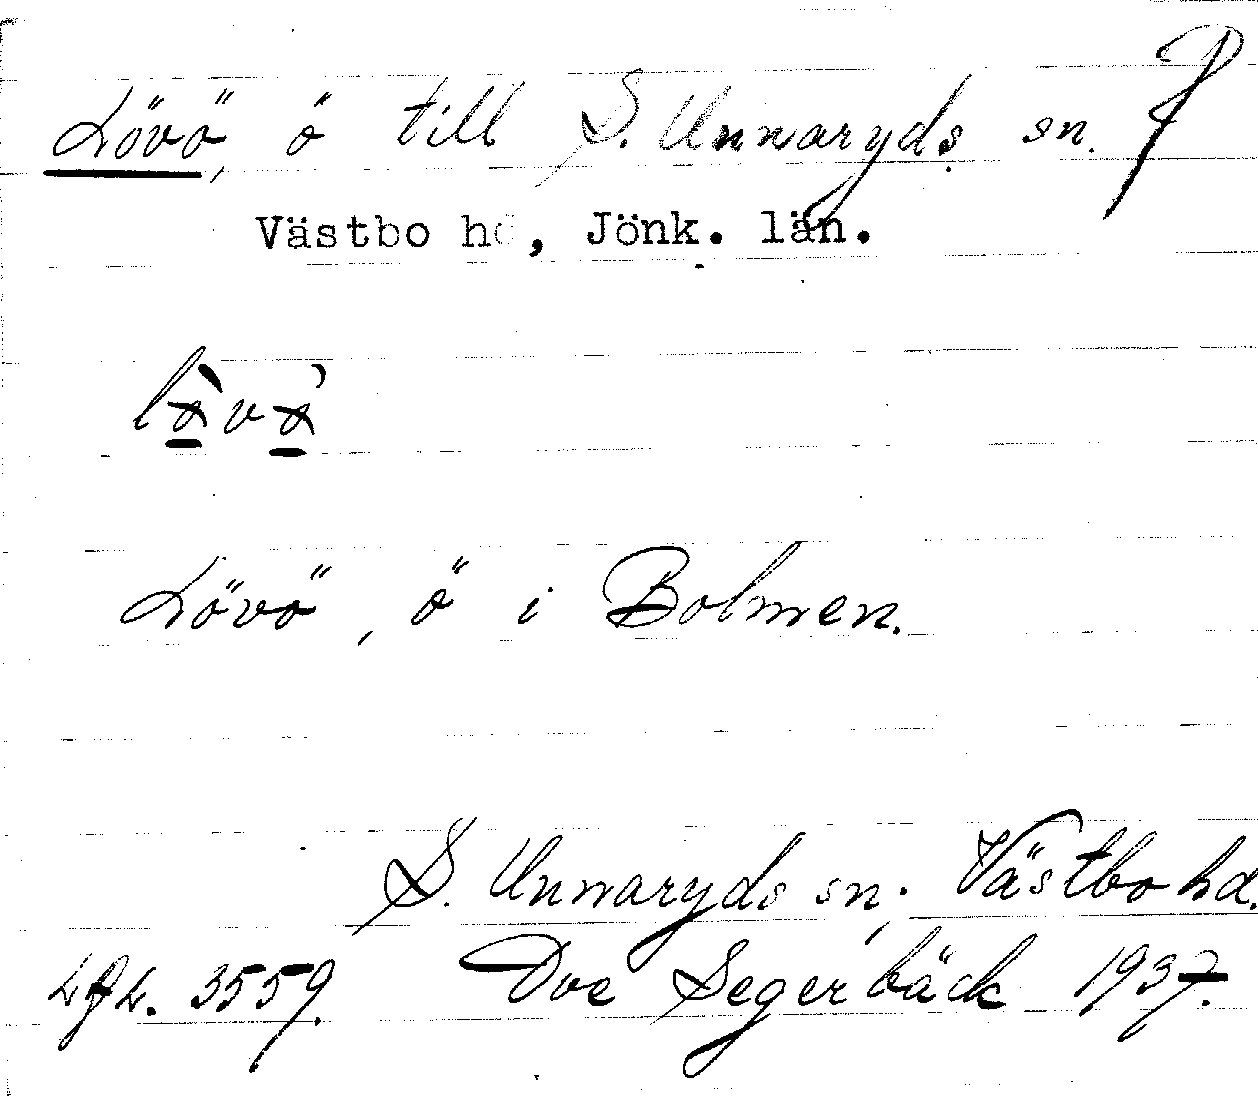 Lövö, ö till S. Unnaryds sn. P
Västbo hd, Jönk. län.
Lövö, ö i Bolmen.
S. Unnaryds sn; Västbo hd.
3559. Dve Segerbäck 1937.